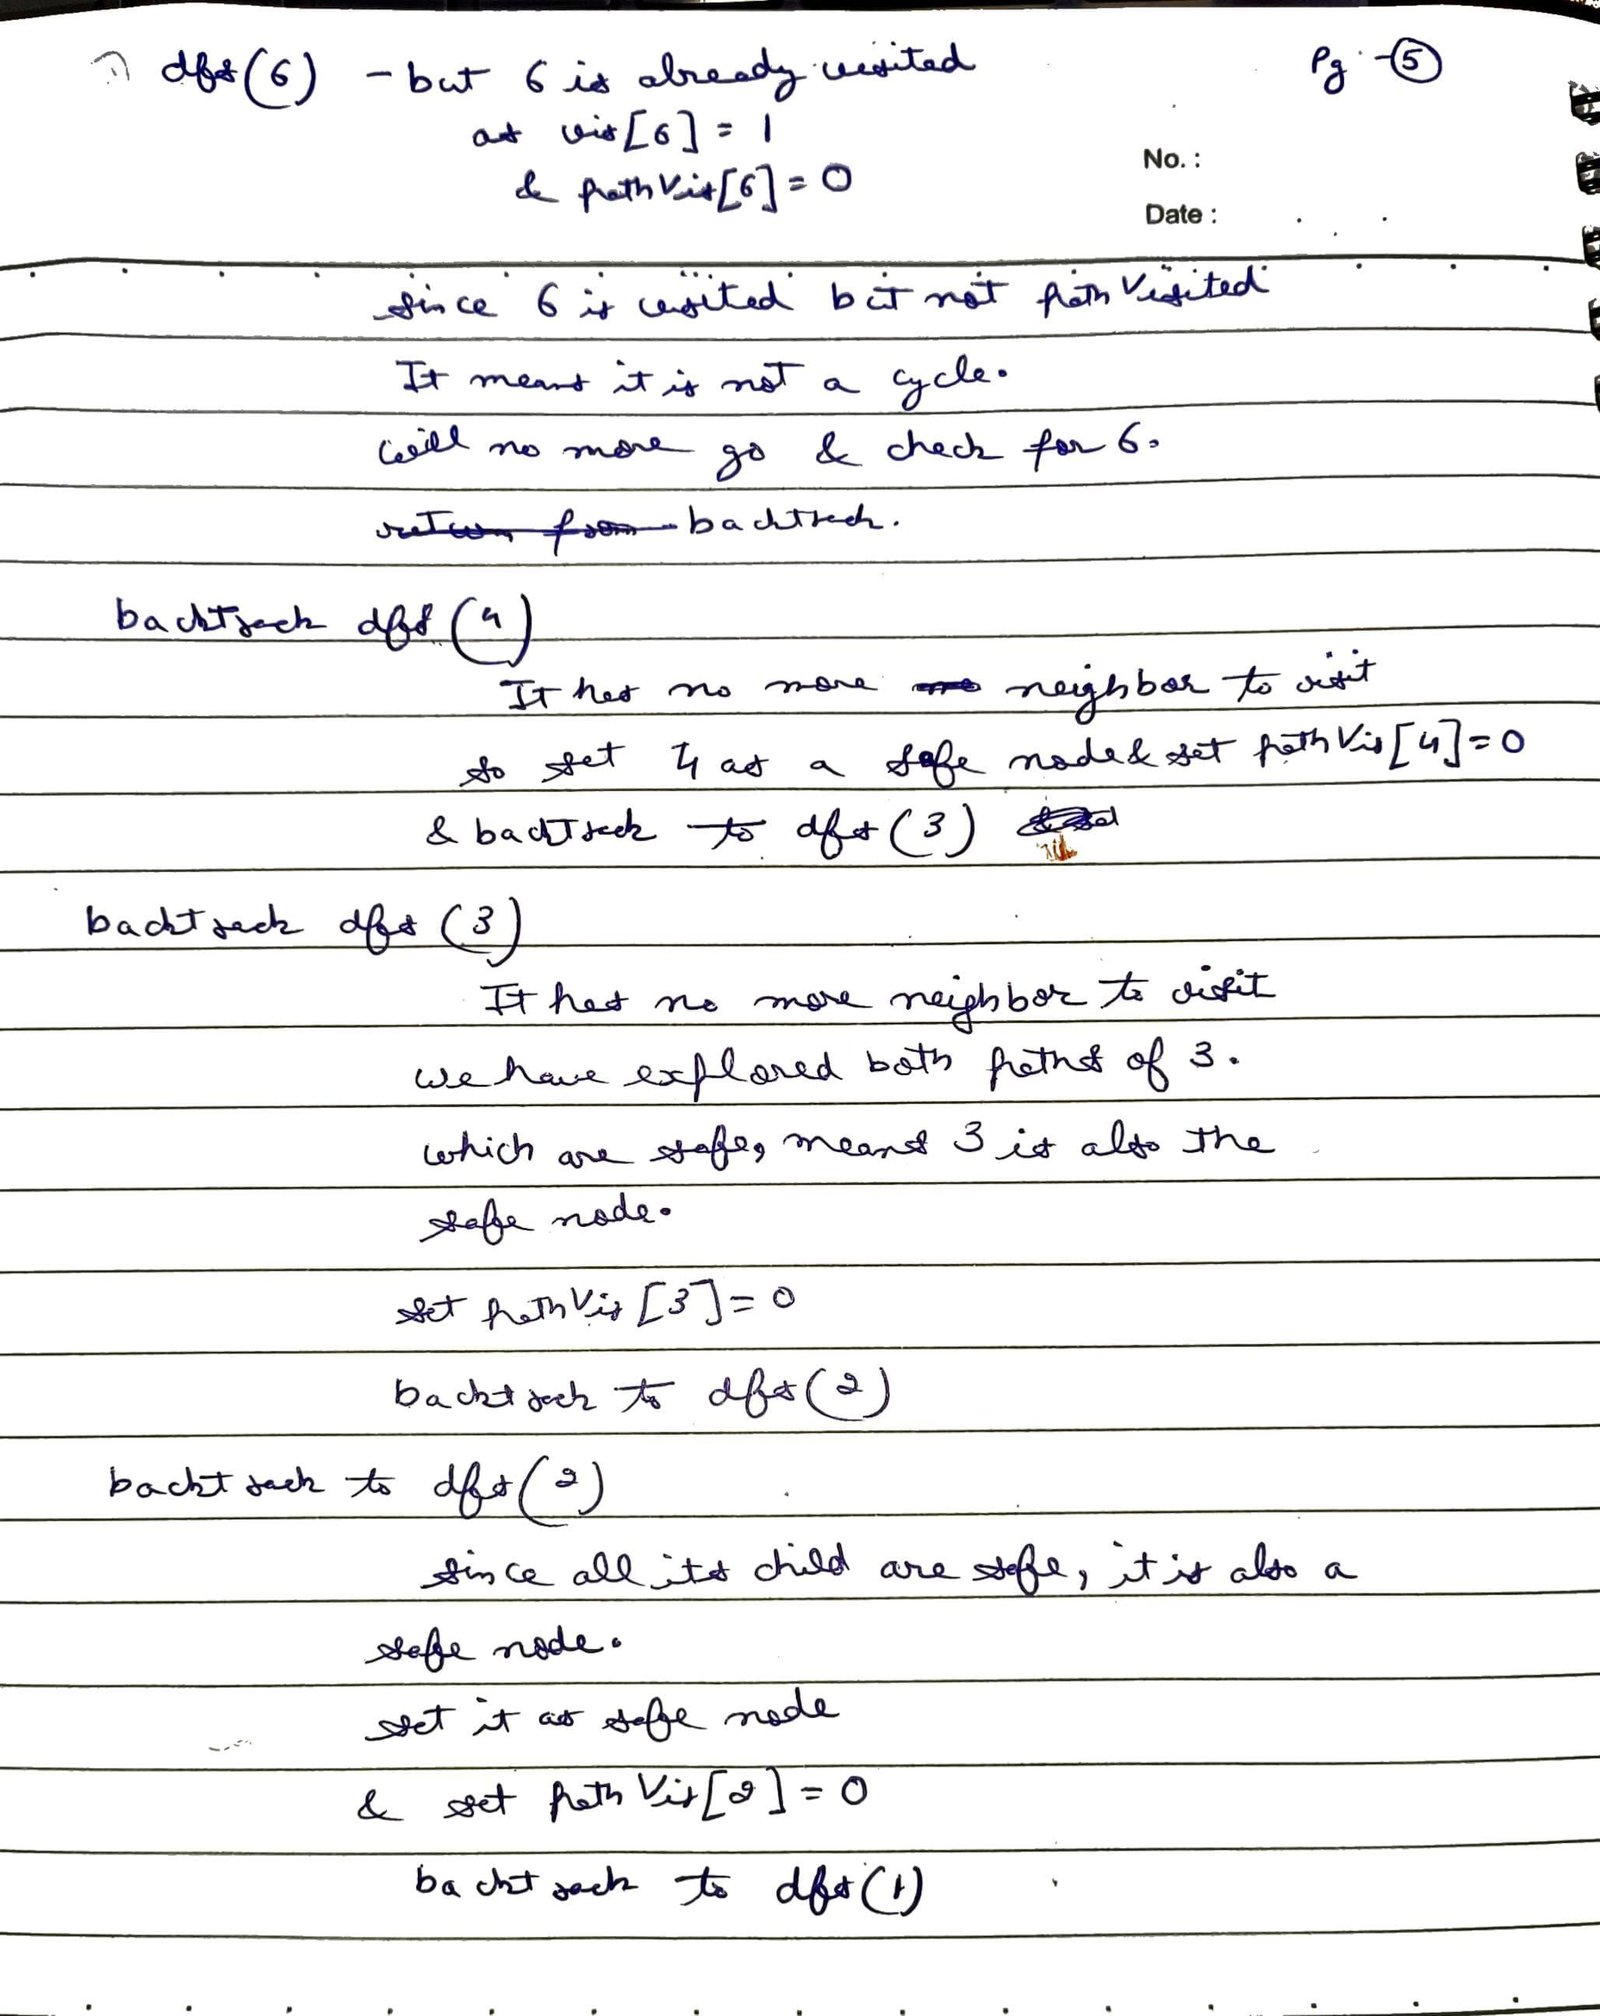 dfs(6) - but 6 is already visited
Pg - 5
as vis[6] = 1
& pathVis[6] = 0
No. :
Date :
since 6 is visited but not path Visited
It means it is not a cycle.
will no more go & check for 6.
return from backtrack.
backtrack dfs (4)
It has no more neighbor to visit
so set 4 as a safe node & set pathVis[4] = 0
& backtrack to dfs (3)
backtrack dfs (3)
It has no more neighbor to visit
we have explored both paths of 3.
which are safe, means 3 is also the
safe node.
set pathVis [3] = 0
backtrack to dfs (2)
backtrack to dfs (2)
since all its child are safe, it is also a
safe node.
set it as safe node
& set path Vis[2] = 0
backtrack to dfs(1)